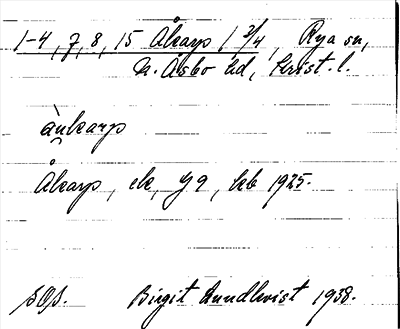 1-4, 7, 8, 15 Åkarp 1 3/4, Rya sn,
N. Åsbo hd, Krist. l.
àukarp
Åkarp, ek, J 9, kb 1925.
SOJ. Birgit Sundkvist 1938.